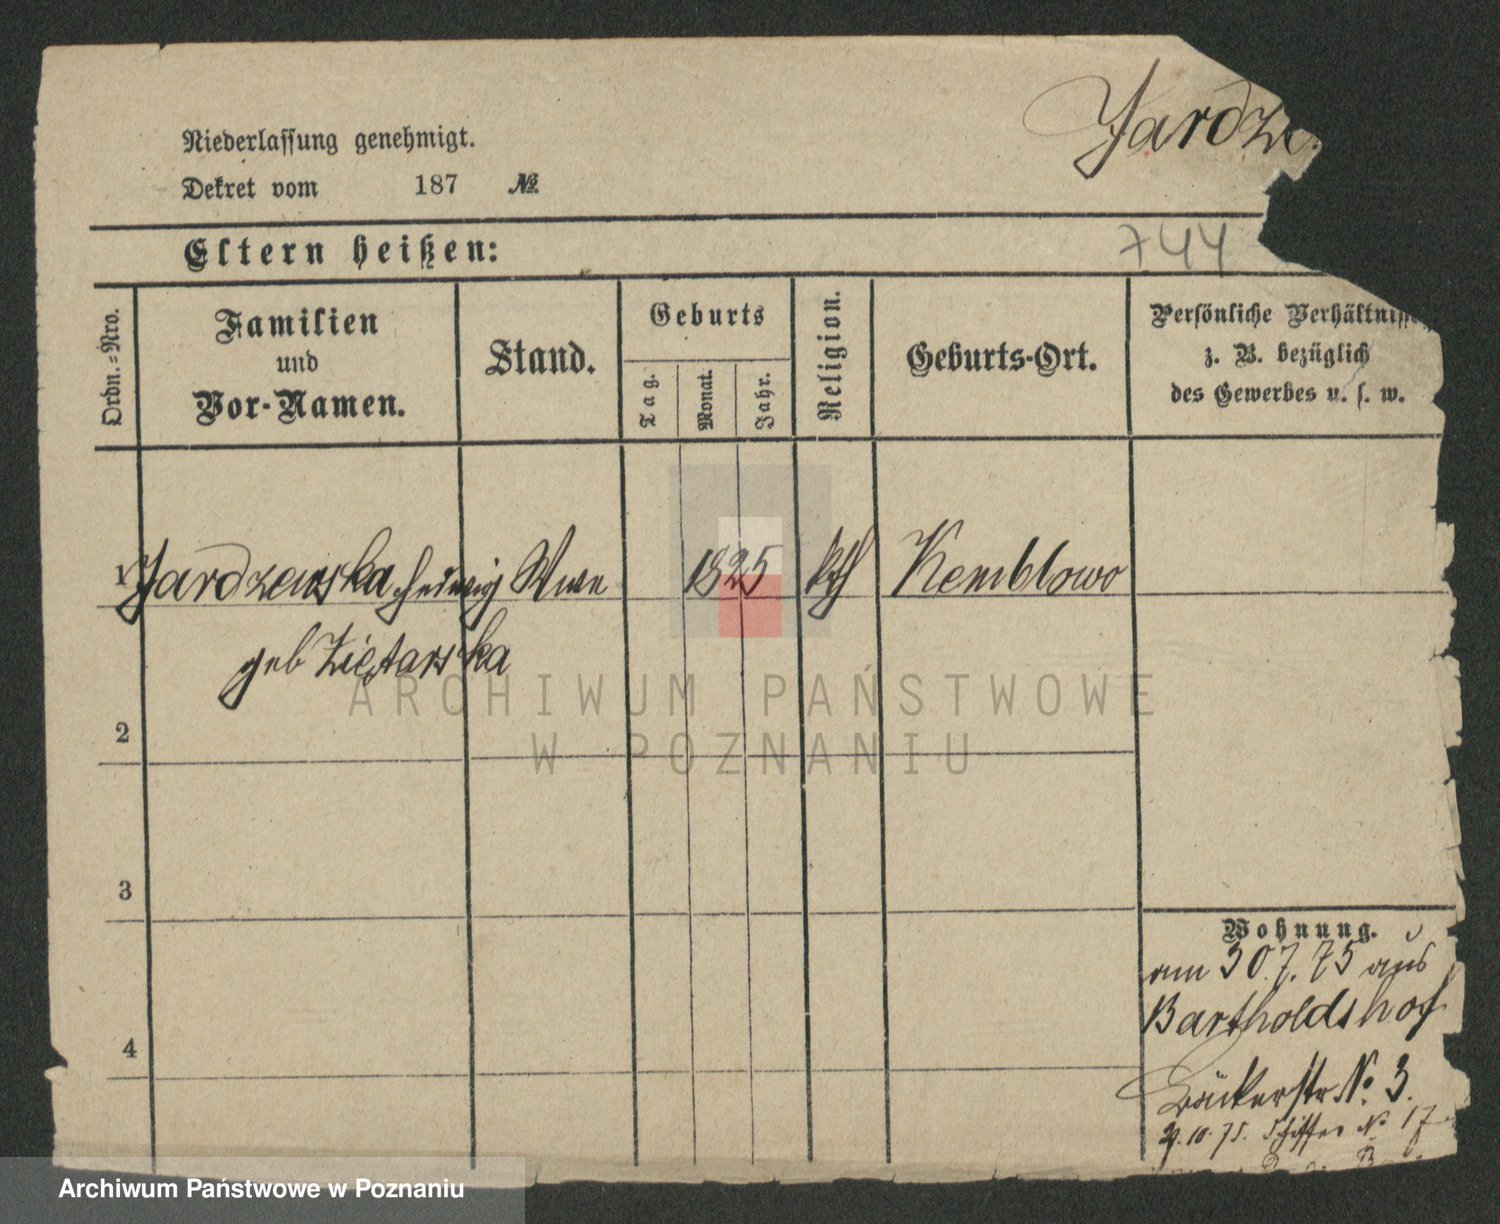 Jardze
Niederlassung genehmigt.
Dekret vom 187 №
Eltern heißen:
744
Ordn.-Nro.
Familien
und
Vor-Namen.
Stand.
Geburts
Tag.
Monat.
Jahr.
Religion.
Geburts-Ort.
Persönliche Verhältnisse
z. B. bezüglich
des Gewerbes u. s. w.
1 Jardzewska Hedwig Wwe 1825 kth Kemblowo
geb Ziętarska
2
3
4
Wohnung.
am 30.7.75 aus
Bartholdshof
Bäckerstr No 3.
29.10.75. Schiffer No 17
ARCHIWUM PAŃSTWOWE
W POZNANIU
Archiwum Państwowe w Poznaniu